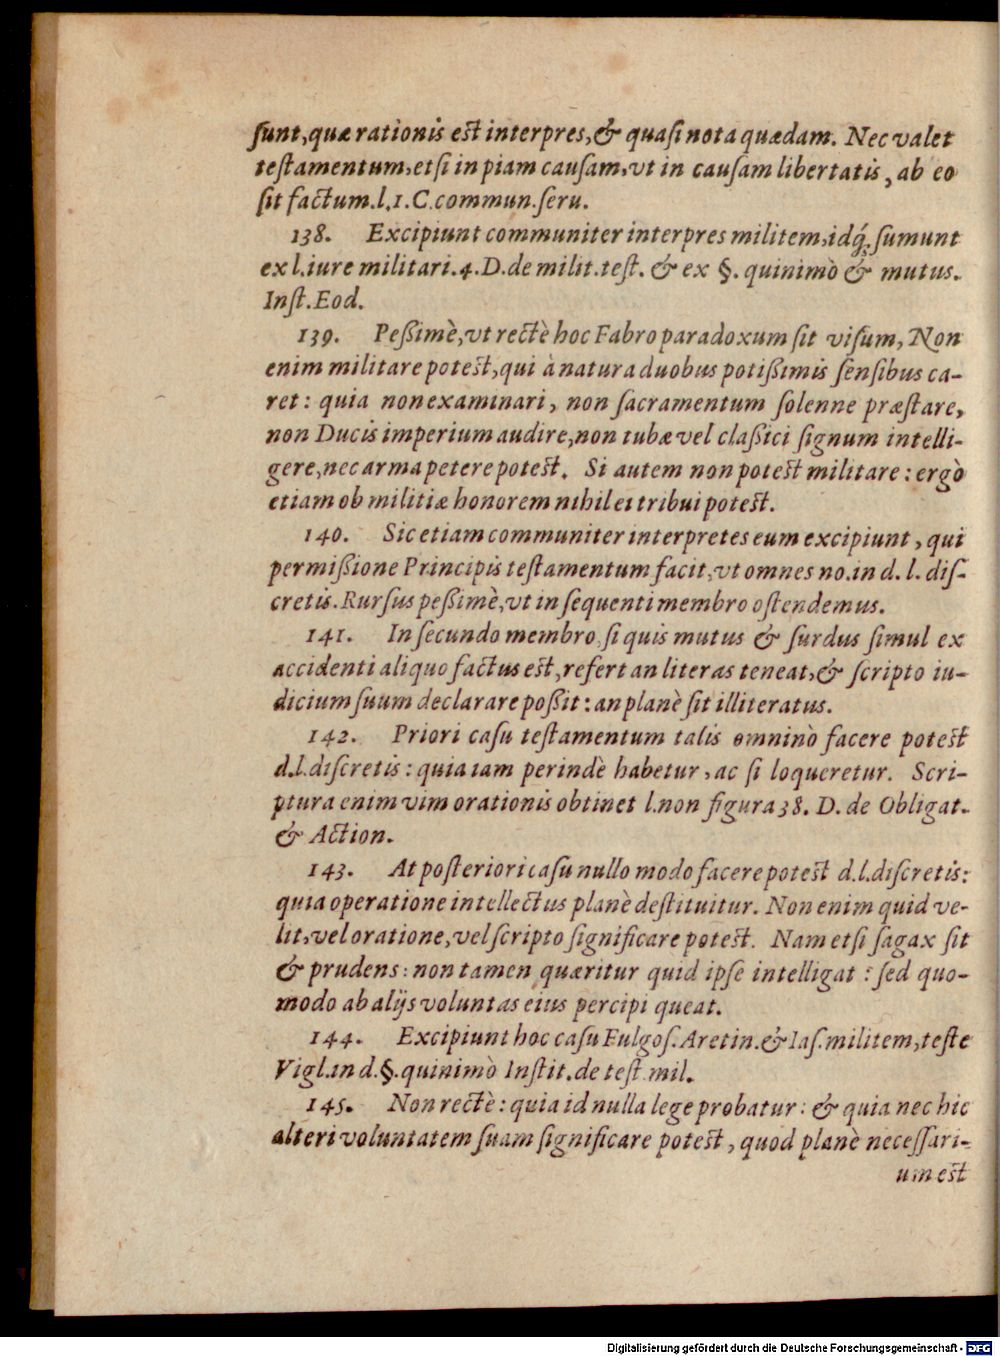 ſunt, quæ rationis est interpres, & quaſi nota quædam. Nec valet
teſtamentum, etſi in piam cauſam, vt in cauſam libertatis, ab eo
ſit factum. l. 1. C. commun. ſeru.
138. Excipiunt communiter interpres militem, idq́; ſumunt
ex l. iure militari. 4. D. de milit. teſt. & ex §. quinimò & mutus.
Inſt. Eod.
139. Peßimè, vt rectè hoc Fabro paradoxum ſit viſum, Non
enim militare potest, qui à natura duobus potißimis ſenſibus ca-
ret: quia non examinari, non ſacramentum ſolenne præſtare,
non Ducis imperium audire, non tubæ vel claßici ſignum intelli-
gere, nec arma petere potest. Si autem non potest militare: ergò
etiam ob militiæ honorem nihil ei tribui potest.
140. Sic etiam communiter interpretes eum excipiunt, qui
permißione Principis teſtamentum facit, vt omnes no. in d. l. diſ-
cretis. Rurſus peßimè, vt in ſequenti membro oſtendemus.
141. In ſecundo membro, ſi quis mutus & ſurdus ſimul ex
accidenti aliquo factus est, refert an literas teneat, & ſcripto iu-
dicium ſuum declarare poßit: an planè ſit illiteratus.
142. Priori caſu teſtamentum talis omninò facere potest
d. l. diſcretis: quia iam perindè habetur, ac ſi loqueretur. Scri-
ptura enim vim orationis obtinet l. non figura 38. D. de Obligat.
& Action.
143. At poſteriori caſu nullo modo facere potest d. l. diſcretis:
quia operatione intellectus planè deſtituitur. Non enim quid ve-
lit, vel oratione, vel ſcripto ſignificare potest. Nam etſi ſagax ſit
& prudens: non tamen quæritur quid ipſe intelligat: ſed quo-
modo ab alijs voluntas eius percipi queat.
144. Excipiunt hoc caſu Fulgoſ. Aretin. & Iaſ. militem, teſte
Vigl. in d. §. quinimò Inſtit. de teſt. mil.
145. Non rectè: quia id nulla lege probatur: & quia nec hic
alteri voluntatem ſuam ſignificare potest, quod planè neceſſari-
um est
Digitalisierung gefördert durch die Deutsche Forschungsgemeinschaft - DFG